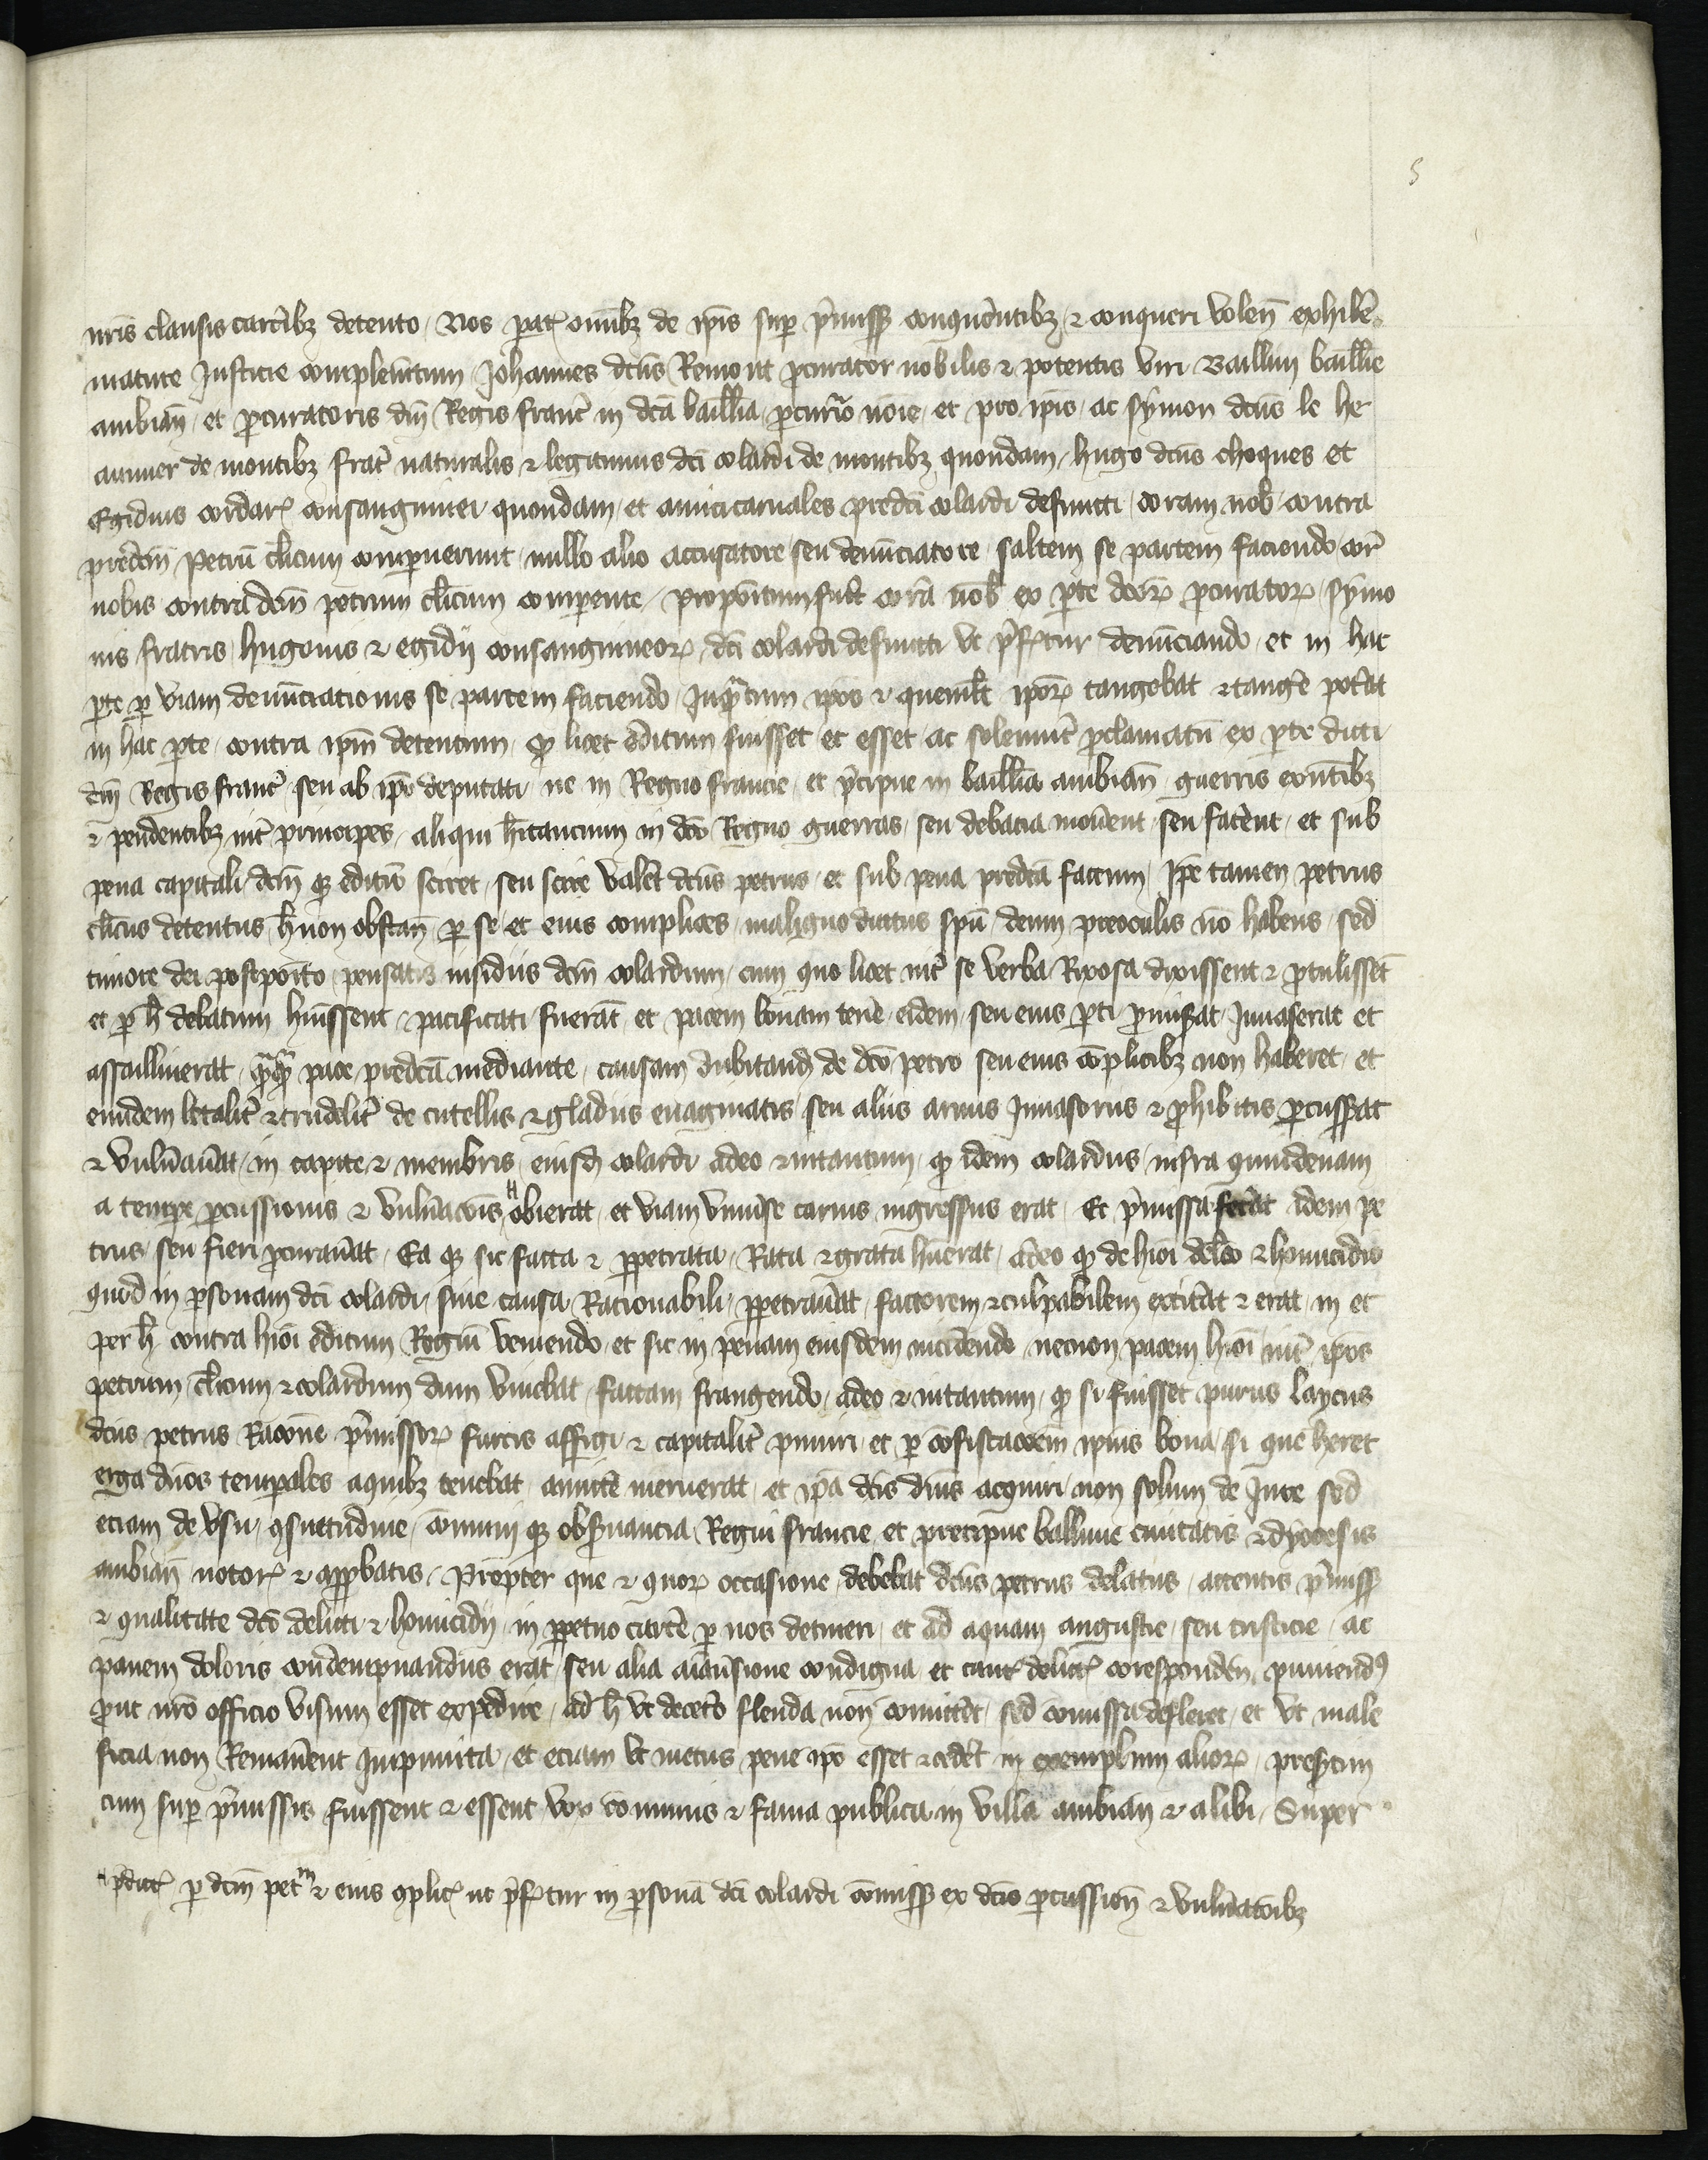 5
nris clausis carc̄ibꝫ detento / Nos parat̄ om̄ibꝫ de ip̄is sup̄ p̄missis conquēntibꝫ / ⁊ conqueri volen̄ exhibē
mature Justicie complem̄tum / Johannes dc̄us Remont ꝓcurator nobilis ⁊ potentis viri Baillivi baillie
ambian̄ / et ꝓcuratoris dn̄i Regis franc̄ in dc̄a baillia / ꝓcurat̄o no͞ie / et pro ip̄is / ac Symon dc̄us le he
aumer de montibꝫ frat̄ naturalis ⁊ legitimus dc̄i colardi de montibꝫ quondam / hugo dc̄us choques et
Egidius cordar̄ consanguinei quondam / et amici carnales predc̄i colardi defuncti / coram nob̄ contra
predc̄m Petrū cl̄icum comꝑuerunt / nullo alio accusatore / seu denūciatore / saltem se partem faciendo cor̄
nobis contra dc̄m petrum cl̄icum comꝑente / propositum fuit corā nob̄ ex ꝑte dc̄oꝝ ꝓcuratoꝝ / symo
nis fratris / hugonis ⁊ egidij consanguineoꝝ / dc̄i colardi defuncti vt p̄fertur / denūciando / et in hac
ꝑte ꝑ viam denūciationis se partem faciendo / Inq̄ntum ip̄os ⁊ quemlt̄ ip̄oꝝ tangebat ⁊ tangē pot̄at
in hac ꝑte / contra ip̄m detentum / ꝙ licet edictum fuisset et esset / ac solemnit̄ ꝓclamatū ex ꝑte dicti
dn̄i Regis franc̄ / seu ab ip̄o deputati / ne in Regno francie / et p̄cipue in baillia ambian̄ / guerris existn̄tibꝫ
⁊ pendentibꝫ int̄ principes / aliqui h̄itancium in dc̄o Regno guerras / seu debata moūent / seu fac̄ent / et sub
pena capitali / dc̄m qꝫ edictū sciret / seu scire valēt dc̄us petrus / et sub pena predc̄a factum / Ip̄e tamen petrus
cl̄icus detentus / h̄ non obstan̄ / ꝑ se / et eius complices / maligno ductus sp̄u / deum preoculis nō habens / sed
timore dei postpoito / pensatis insidiis dc̄m colardum / cum quo licet int̄ se verba Rixosa dixissent ⁊ ꝓtulissēt
et ꝑ h̄ debatum h̄uissent / pacificati fuerāt / et pacem bonam tenē eidem / seu eius ꝑti ꝓmis̄at / Inuaserat et
assallierat / q̄nq̄m pace predc̄a mediante / causam dubitandi de dc̄o petro seu eius cōplicibꝫ non haberet / et
eundem letalit̄ ⁊ crudelit̄ de cutellis ⁊ gladiis euaginatis / seu aliis armis Inuasoriis ⁊ ꝓhibitis ꝑcusserat
⁊ vuln̄auāt / in capite ⁊ membris / eiusd̄ colardi / adeo ⁊ intantum / ꝙ idem colardus / infra quindenam
a tempore ꝑcussionis ⁊ vuln̄ac̄ois / obierat / et viam vniūse carnis ingressus erat / Et p̄missa fec̄at idem pe
trus / seu fieri ꝓcurauāt / Ea qꝫ sic facta ⁊ ꝑpetrata / Rata ⁊ grata h̄uerat / Adeo ꝙ de h̄ioi del̄co ⁊ homicidio
quod in ꝑsonam dc̄i colardi / sine causa Rationabili / ꝑpetrauāt / factorem ⁊ culpabilem extit̄at ⁊ erat / in et
per h̄ contra h̄ioi edictum Regiū veniendo / et sic in penam eiusdem incidendo / necnon pacem h̄ioi / int̄ ip̄os
petrum cl̄icum ⁊ colardum dum viuebat / factam frangendo / adeo ⁊ intantum / ꝙ si fuisset purus laycus
dc̄us petrus Rac̄one p̄missoꝝ furcis affigi / ⁊ capitalit̄ puniri / et ꝑ cōfiscac̄oem ip̄ius bona / si que h̄eret
erga dn̄os temꝑales aquibꝫ tenebat / amitt̄e meruerat / et ip̄a dc̄is dn̄is acquiri / non solum de Jure sed
eciam de vsu / ꝯsuetudine / cōmuni qꝫ obs̄uancia Regni francie / et precipue ballivie ciuitatis ⁊ dyocesis
ambian̄ notor̄ ⁊ approbatis / Propter que ⁊ quoꝝ occasione / debebat dc̄us petrus delatus / attentis p̄missis
⁊ qualitate dc̄i delicti ⁊ homicidij / in ꝑpetuo carc̄e ꝑ nos detineri / et ad aquam angustie / seu tristicie / ac
panem doloris condempnandus erat / seu alia aīaūsione condigna / et tant̄ delict̄ coresponden̄ puniendꝰ
ꝓut nr̄o officio visum esset expedire / ad h̄ vt decet̄o flenda non cōmittet / sed cōmissa defleret / et vt male
ficia non Remanēent Impunita / et eciam vt metus pene ip̄o esset ⁊ ced̄et in exemplum alioꝝ / presertim
cum sup̄ p̄missis fuissent ⁊ essent vox cōmunis ⁊ fama publica in villa ambian̄ ⁊ alibi / Super
p̄dict̄ ꝑ dc̄m petm̄ ⁊ eius ꝯplic̄ ut p̄fertur in ꝑsonā dc̄i colardi cōmissis ex dc̄is ꝑcussion̄ ⁊ vuln̄ac̄oibꝫ